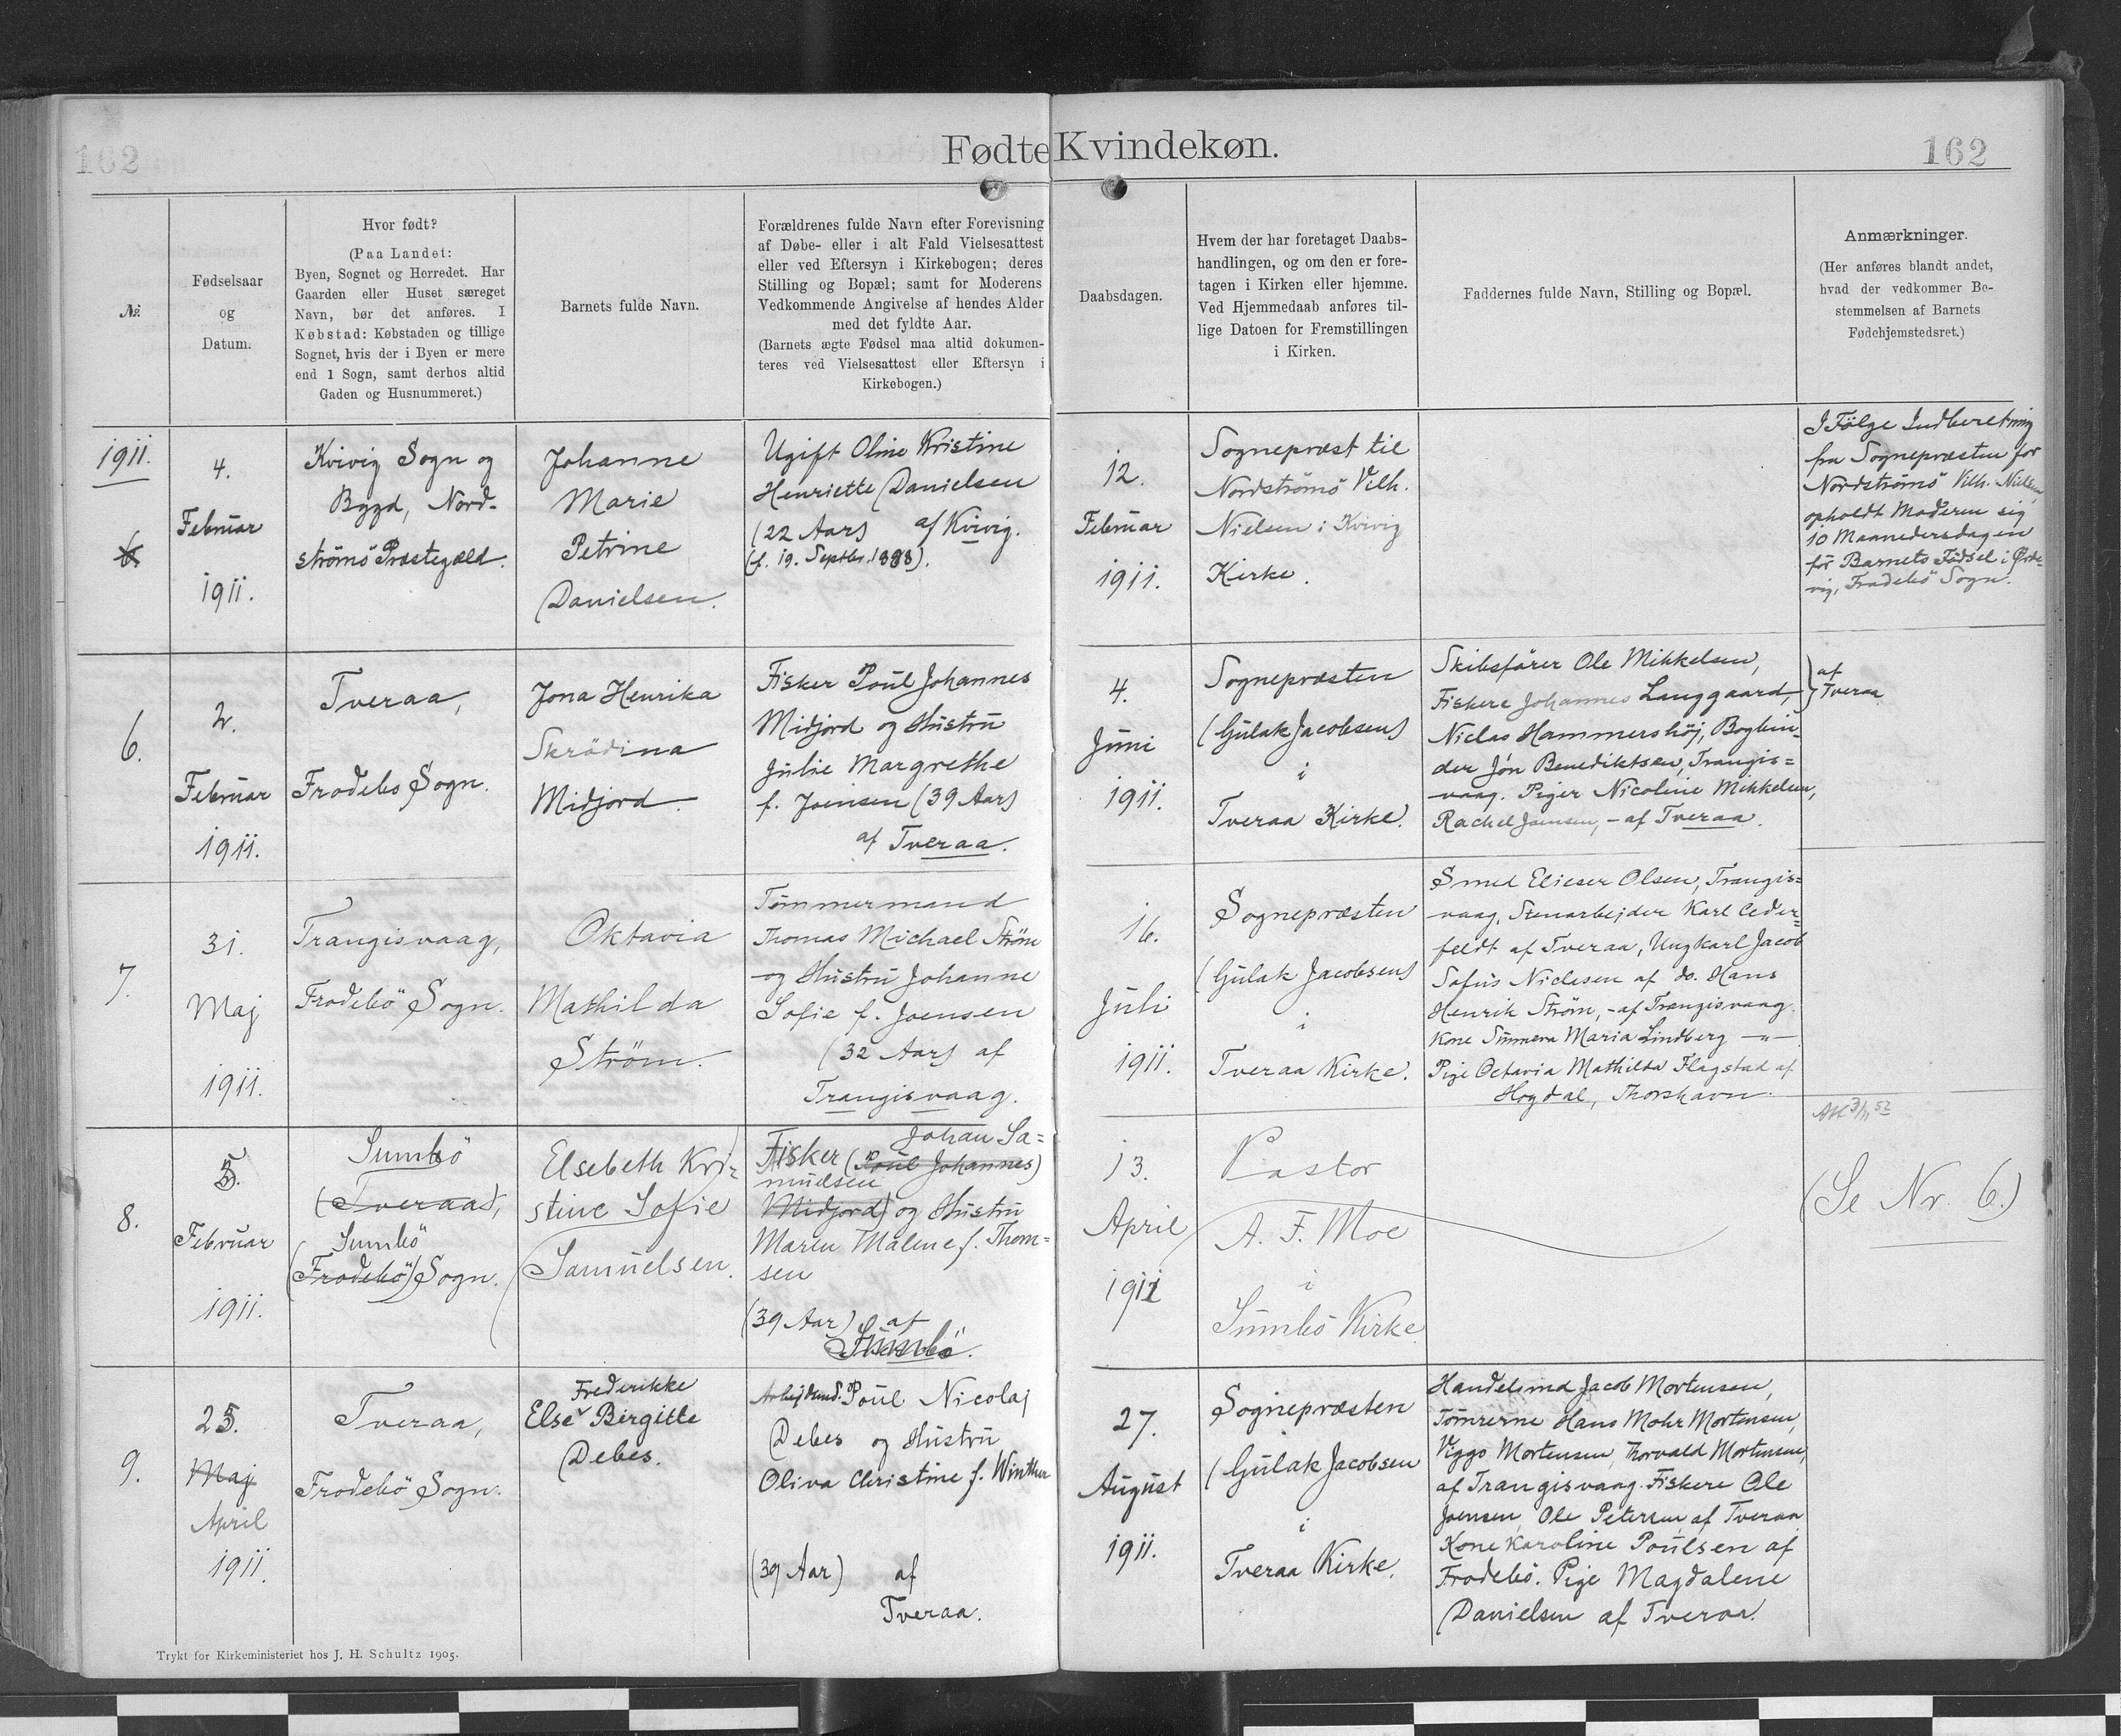 162
Fødte Kvindekøn.
162
№
Fødselsaar
og
Datum.
Hvor født?
(Paa Landet:
Byen, Sognet og Herredet. Har
Gaarden eller Huset særeget
Navn, bør det anføres. I
Købstad: Købstaden og tillige
Sognet, hvis der i Byen er mere
end 1 Sogn, samt derhos altid
Gaden og Husnummeret.)
Barnets fulde Navn.
Forældrenes fulde Navn efter Forevisning
af Døbe- eller i alt Fald Vielsesattest
eller ved Eftersyn i Kirkebogen; deres
Stilling og Bopæl; samt for Moderens
Vedkommende Angivelse af hendes Alder
med det fyldte Aar.
(Barnets ægte Fødsel maa altid dokumen-
teres ved Vielsesattest eller Eftersyn i
Kirkebogen.)
Daabsdagen.
Hvem der har foretaget Daabs-
handlingen, og om den er fore-
tagen i Kirken eller hjemme.
Ved Hjemmedaab anføres til-
lige Datoen for Fremstillingen
i Kirken.
Faddernes fulde Navn, Stilling og Bopæl.
Anmærkninger.
(Her anføres blandt andet,
hvad der vedkommer Be-
stemmelsen af Barnets
Fødehjemstedsret.)
1911.
6
4.
Februar
1911.
Kvivig Sogn og
Bygd, Nord-
strömö Præstegæld.
Johanne
Marie
Petrine
Danielsen.
Ugift Oline Kristine
Henriette Danielsen
(22 Aar) af Kvivig.
(f. 19. Septbr. 1888).
12.
Februar
1911.
Sognepræst til
Nordströmö Vilh.
Nielsen i Kvivig
Kirke.
I Fölge Indberetning
fra Sognepræsten for
Nordströmö Vilh. Nielsen
opholdt Moderen sig
10 Maanedersdagen
för Barnets Födsel i Örde-
vig, Frodebö Sogn.
6.
2.
Februar
1911.
Tveraa,
Frodebö Sogn.
Jona Henrika
Skrädina
Midjord.
Fisker Poul Johannes
Midjord og Hustru
Julie Margrethe
f. Joensen (39 Aar)
af Tveraa.
4.
Juni
1911.
Sognepræsten
(Gulak Jacobsen)
i
Tveraa Kirke.
Skibsförer Ole Mikkelsen,
Fiskere Johannes Langgaard,
Niclas Hammershöj, Bogbin-
der Jón Benediktsen, Trangis=
vaag. Piger Nicoline Mikkelsen,
Rachel Joensen, - af Tveraa.
} af
Tveraa
7.
31.
Maj
1911.
Trangisvaag,
Frodebö Sogn.
Oktavia
Mathilda
Ström.
Tömmermand
Thomas Michael Ström
og Hustru Johanne
Sofie f. Joensen
(32 Aar) af
Trangisvaag.
16.
Juli
1911.
Sognepræsten
(Gulak Jacobsen)
i
Tveraa Kirke.
Smed Elieser Olsen, Trangis=
vaag, Stenarbejder Karl Ceder=
feldt af Tveraa, Ungkarl Jacob
Sofus Niclesen af do. Hans
Henrik Ström, - af Trangisvaag.
Kone Sunneva Maria Lindberg — " —
Pige Octavia Mathilda Flagstad af
Hogdal, Thorshavn.
8.
5.
Februar
1911.
Sumbö
(Tveraa),
Sumbö
(Frodebö) Sogn.
Elsebeth Kri-
stine Sofie
Samuelsen.
Johan Sa=
Fisker (Poul Johannes)
muelsen
Midjord) og Hustru
Maren Malene f. Thom=
sen
(39 Aar) af
Sumbö.
13.
April
1911
Pastor
A. F. Moe
i
Sumbö Kirke
(Se Nr. 6.)
9.
25.
Maj
April
1911.
Tveraa,
Frodebö Sogn.
Frederikke
Else Birgitte
Debes.
Arbejdsmd. Poul Nicolaj
Debes og Hustru
Oliva Christine f. Winther
(39 Aar) af
Tveraa.
27.
August
1911.
Sognepræsten
(Gulak Jacobsen
i
Tveraa Kirke.
Handelsmd Jacob Mortensen,
Tömrerne Hans Mohr Mortensen,
Viggo Mortensen, Thorvald Mortensen,
af Trangisvaag. Fiskere Ole
Joensen, Ole Petersen af Tveraa
Kone Karoline Poulsen af
Frodebö. Pige Magdalene
Danielsen af Tveraa.
Trykt for Kirkeministeriet hos J. H. Schultz 1905.